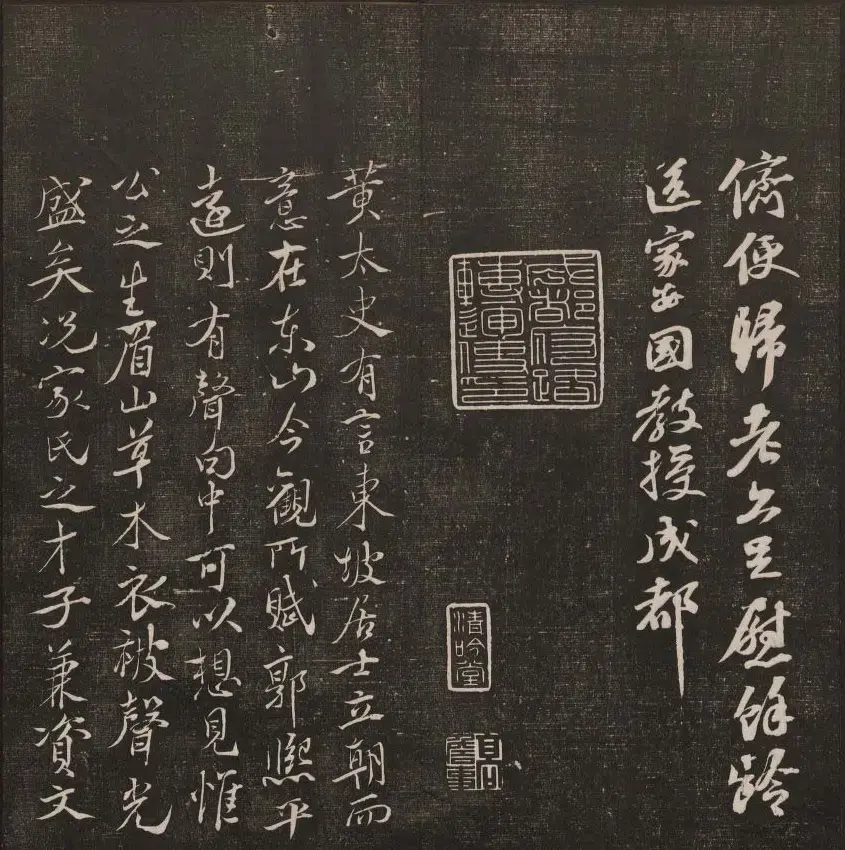 儕便歸老亦足慰餘齡
送家安國教授成都
清吟堂
黄太史有言東坡居士立朝而
意在东山今觀所賦郭熙平
遠則有聲句中可以想見惟
公之生眉山草木衣被聲光
盛矣况家氏之才子兼資文